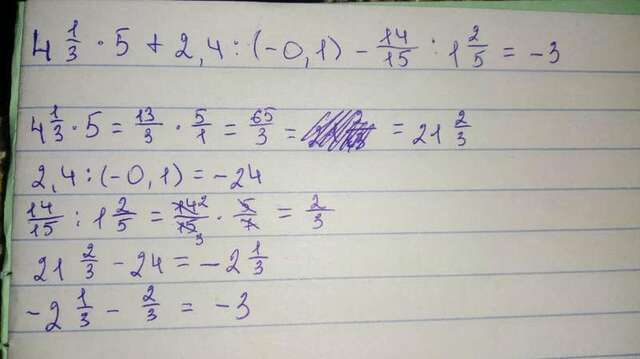 4 1/3 · 5 + 2,4 : (-0,1) - 14/15 : 1 2/5 = -3
4 1/3 · 5 = 13/3 · 5/1 = 65/3 = = 21 2/3
2,4 : (-0,1) = -24
14/15 : 1 2/5 = 14 2/15 3 · 5/7 = 2/3
21 2/3 - 24 = -2 1/3
-2 1/3 - 2/3 = -3